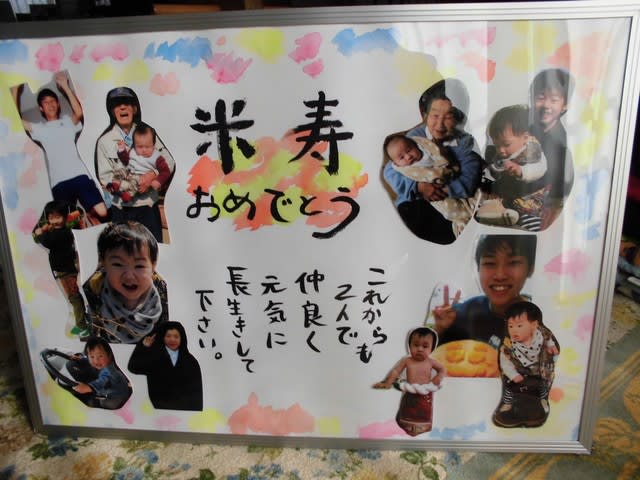 米寿
おめでとう
これからも
2人で
仲良く
元気に
長生きして
下さい。